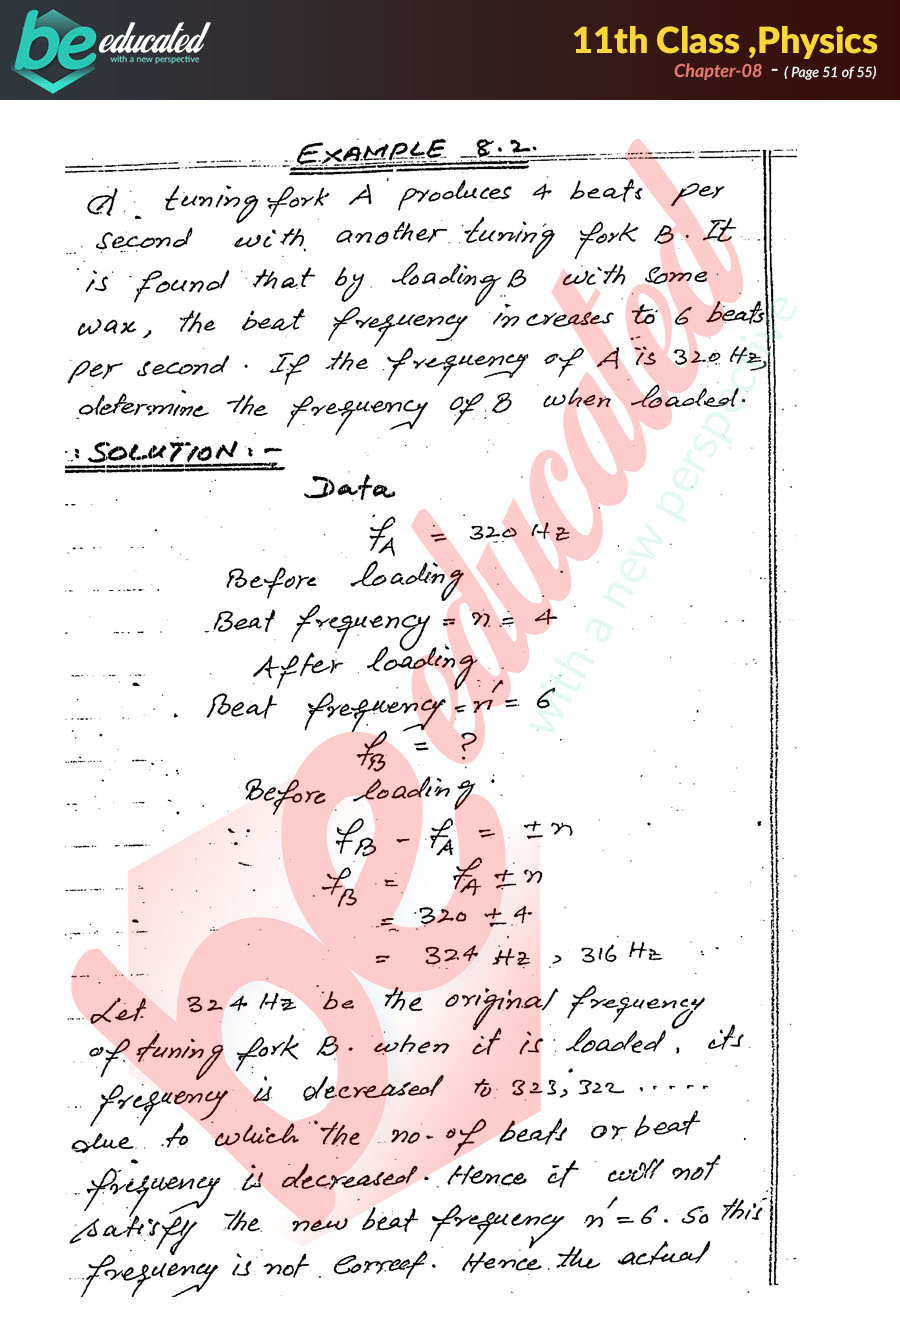 be educated
with a new perspective
11th Class ,Physics
Chapter-08 - ( Page 51 of 55)
EXAMPLE 8.2.
A tuning fork A produces 4 beats per
second with another tuning fork B. It
is found that by loading B with some
wax, the beat frequency increases to 6 beats
per second. If the frequency of A is 320 Hz,
determine the frequency of B when loaded.
:SOLUTION:-
Data
fA = 320 Hz
Before loading
Beat frequency = n = 4
After loading
Beat frequency = n' = 6
fB = ?
Before loading
∵ fB - fA = ±n
fB = fA ± n
= 320 ± 4
= 324 Hz , 316 Hz
Let 324 Hz be the original frequency
of tuning fork B. when it is loaded, its
frequency is decreased to 323, 322 .....
due to which the no. of beats or beat
frequency is decreased. Hence it will not
satisfy the new beat frequency n' = 6. So this
frequency is not correct. Hence the actual
be educated
with a new perspective